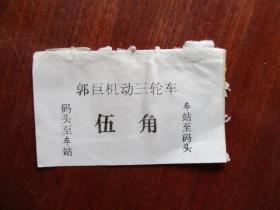 郭巨机动三轮车
伍角
码头至车站
车站至码头